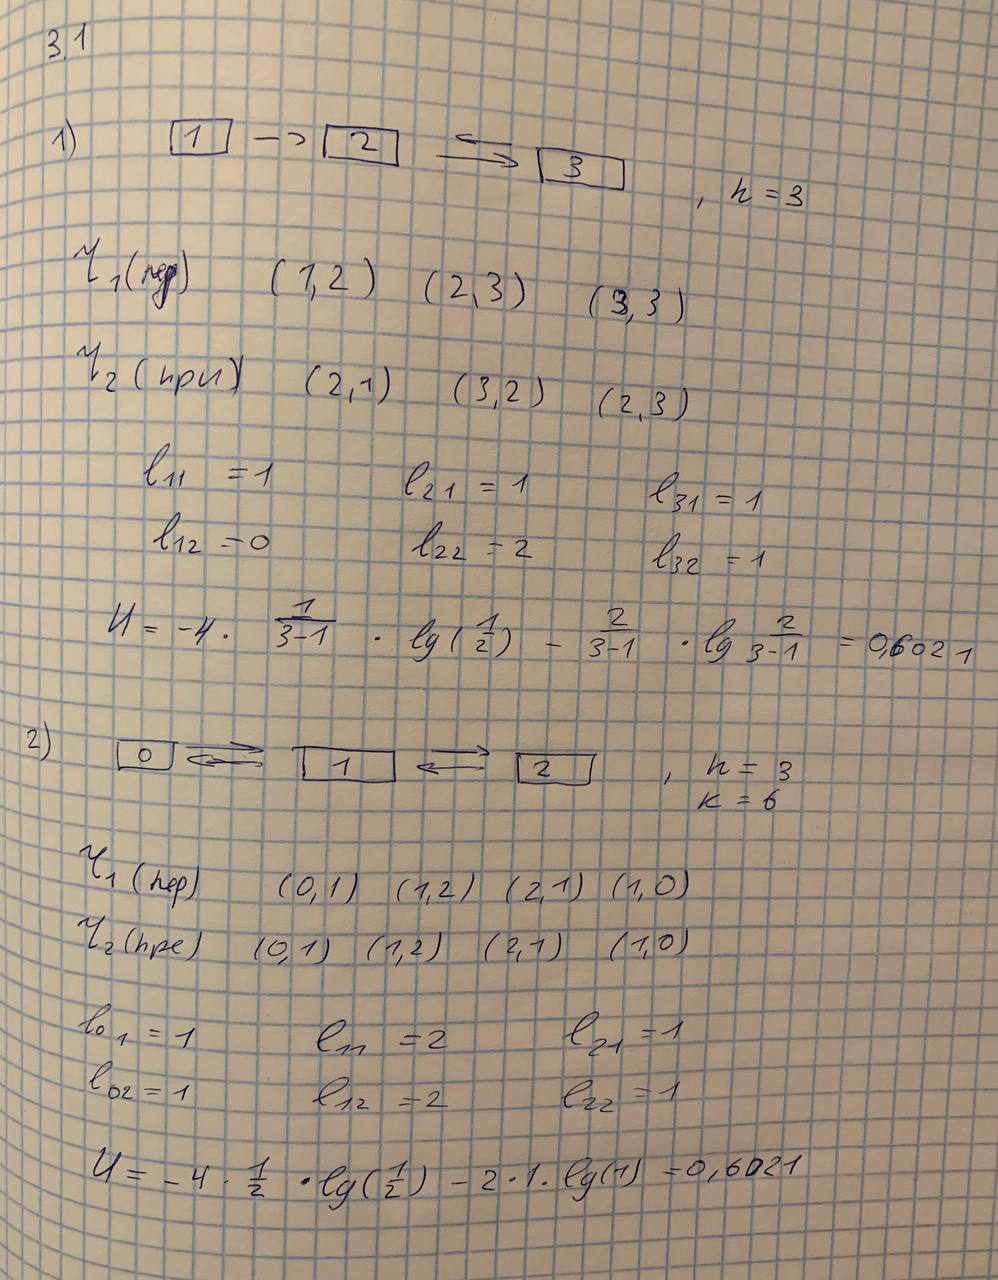 3.1
1) 1 → 2 ⇄ 3 , n = 3
r₁ (пер) (1,2) (2,3) (3,3)
r₂ (при) (2,1) (3,2) (2,3)
l₁₁ = 1 l₂₁ = 1 l₃₁ = 1
l₁₂ = 0 l₂₂ = 2 l₃₂ = 1
H = -4 · 1/(3-1) · lg(1/2) - 2/(3-1) · lg 2/(3-1) = 0,6021
2) 0 ⇄ 1 ⇄ 2 , n = 3
k = 6
r₁ (пер) (0,1) (1,2) (2,1) (1,0)
r₂ (пре) (0,1) (1,2) (2,1) (1,0)
l₀₁ = 1 l₁₁ = 2 l₂₁ = 1
l₀₂ = 1 l₁₂ = 2 l₂₂ = 1
H = -4 · 1/2 · lg(1/2) - 2 · 1 · lg(1) = 0,6021